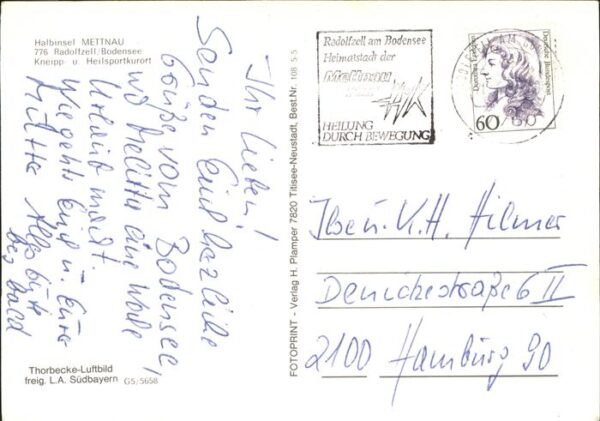 Halbinsel METTNAU
776 Radolfzell/Bodensee
Kneipp- u. Heilsportkurort
Ihr Lieben!
Senden Euch herzliche
Grüße vom Bodensee,
wo Melitta eine Woche
Urlaub macht.
Wie gehts Euch u. Eurer
Mutter Alles Gute
bis bald
Thorbecke-Luftbild
freig. L.A. Südbayern GS/5658
FOTOPRINT - Verlag H. Plamper 7820 Titisee-Neustadt, Best.Nr. 108 5-5
Radolfzell am Bodensee
Heimatstadt der
Mettnau
HEILUNG
DURCH BEWEGUNG
60
Deutsche Bundespost
Ilse u. K.H. Hilmer
Denickestraße 6 II
2100 Hamburg 90